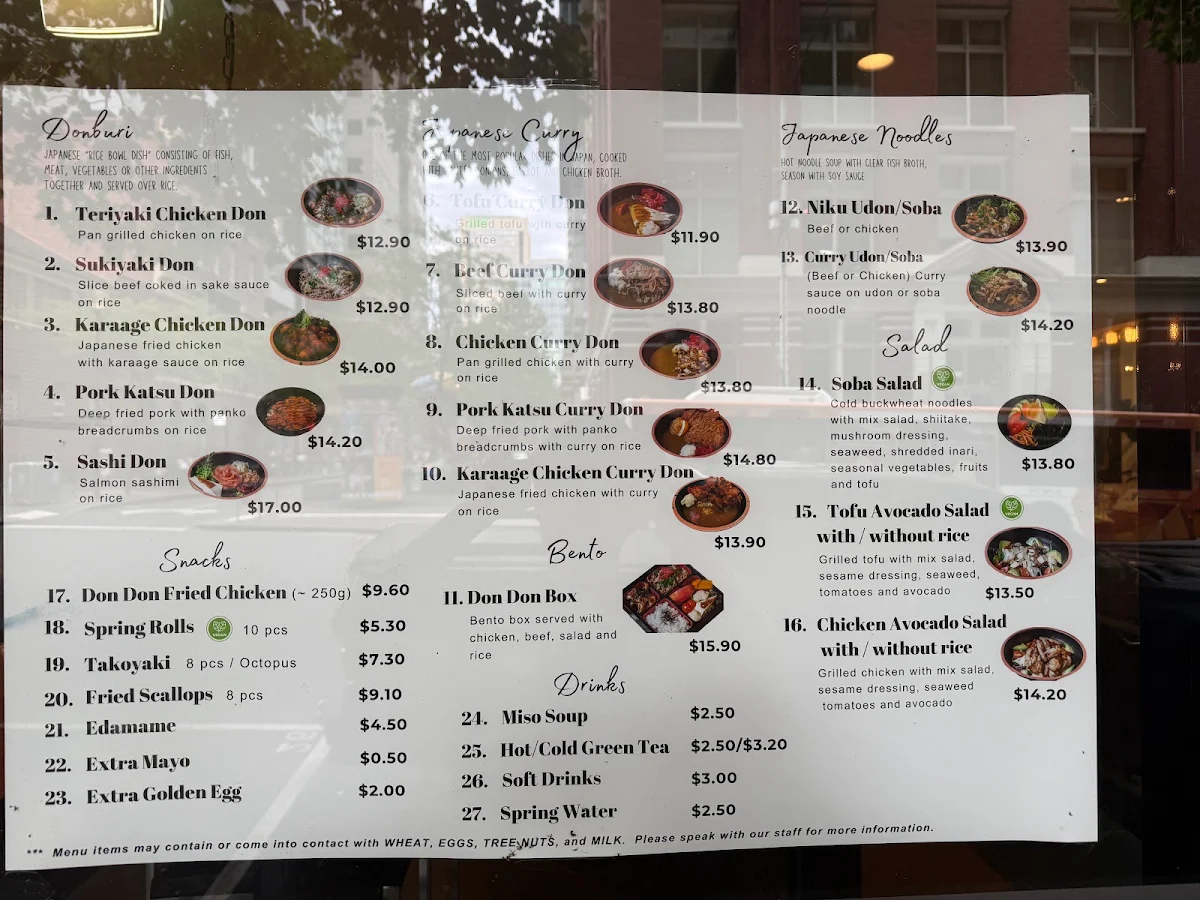 Donburi
JAPANESE "RICE BOWL DISH" CONSISTING OF FISH,
MEAT, VEGETABLES OR OTHER INGREDIENTS
TOGETHER AND SERVED OVER RICE.
1. Teriyaki Chicken Don
Pan grilled chicken on rice
$12.90
2. Sukiyaki Don
Slice beef coked in sake sauce
on rice
$12.90
3. Karaage Chicken Don
Japanese fried chicken
with karaage sauce on rice
$14.00
4. Pork Katsu Don
Deep fried pork with panko
breadcrumbs on rice
$14.20
5. Sashi Don
Salmon sashimi
on rice
$17.00
Snacks
17. Don Don Fried Chicken (~ 250g) $9.60
18. Spring Rolls VEGAN 10 pcs $5.30
19. Takoyaki 8 pcs / Octopus $7.30
20. Fried Scallops 8 pcs $9.10
21. Edamame $4.50
22. Extra Mayo $0.50
23. Extra Golden Egg $2.00
Japanese Curry
THE MOST POPULAR DISHES IN JAPAN, COOKED
CHICKEN BROTH.
6. Tofu Curry Don
Grilled tofu with curry
on rice
$11.90
7. Beef Curry Don
Sliced beef with curry
on rice
$13.80
8. Chicken Curry Don
Pan grilled chicken with curry
on rice
$13.80
9. Pork Katsu Curry Don
Deep fried pork with panko
breadcrumbs with curry on rice
$14.80
10. Karaage Chicken Curry Don
Japanese fried chicken with curry
on rice
$13.90
Bento
11. Don Don Box
Bento box served with
chicken, beef, salad and
rice
$15.90
Drinks
24. Miso Soup $2.50
25. Hot/Cold Green Tea $2.50/$3.20
26. Soft Drinks $3.00
27. Spring Water $2.50
Japanese Noodles
HOT NOODLE SOUP WITH CLEAR FISH BROTH,
SEASON WITH SOY SAUCE
12. Niku Udon/Soba
Beef or chicken
$13.90
13. Curry Udon/Soba
(Beef or Chicken) Curry
sauce on udon or soba
noodle
$14.20
Salad
14. Soba Salad VEGAN
Cold buckwheat noodles
with mix salad, shiitake,
mushroom dressing,
seaweed, shredded inari,
seasonal vegetables, fruits
and tofu
$13.80
15. Tofu Avocado Salad VEGAN
with / without rice
Grilled tofu with mix salad,
sesame dressing, seaweed,
tomatoes and avocado
$13.50
16. Chicken Avocado Salad
with / without rice
Grilled chicken with mix salad,
sesame dressing, seaweed
tomatoes and avocado
$14.20
*** Menu items may contain or come into contact with WHEAT, EGGS, TREE NUTS, and MILK. Please speak with our staff for more information.